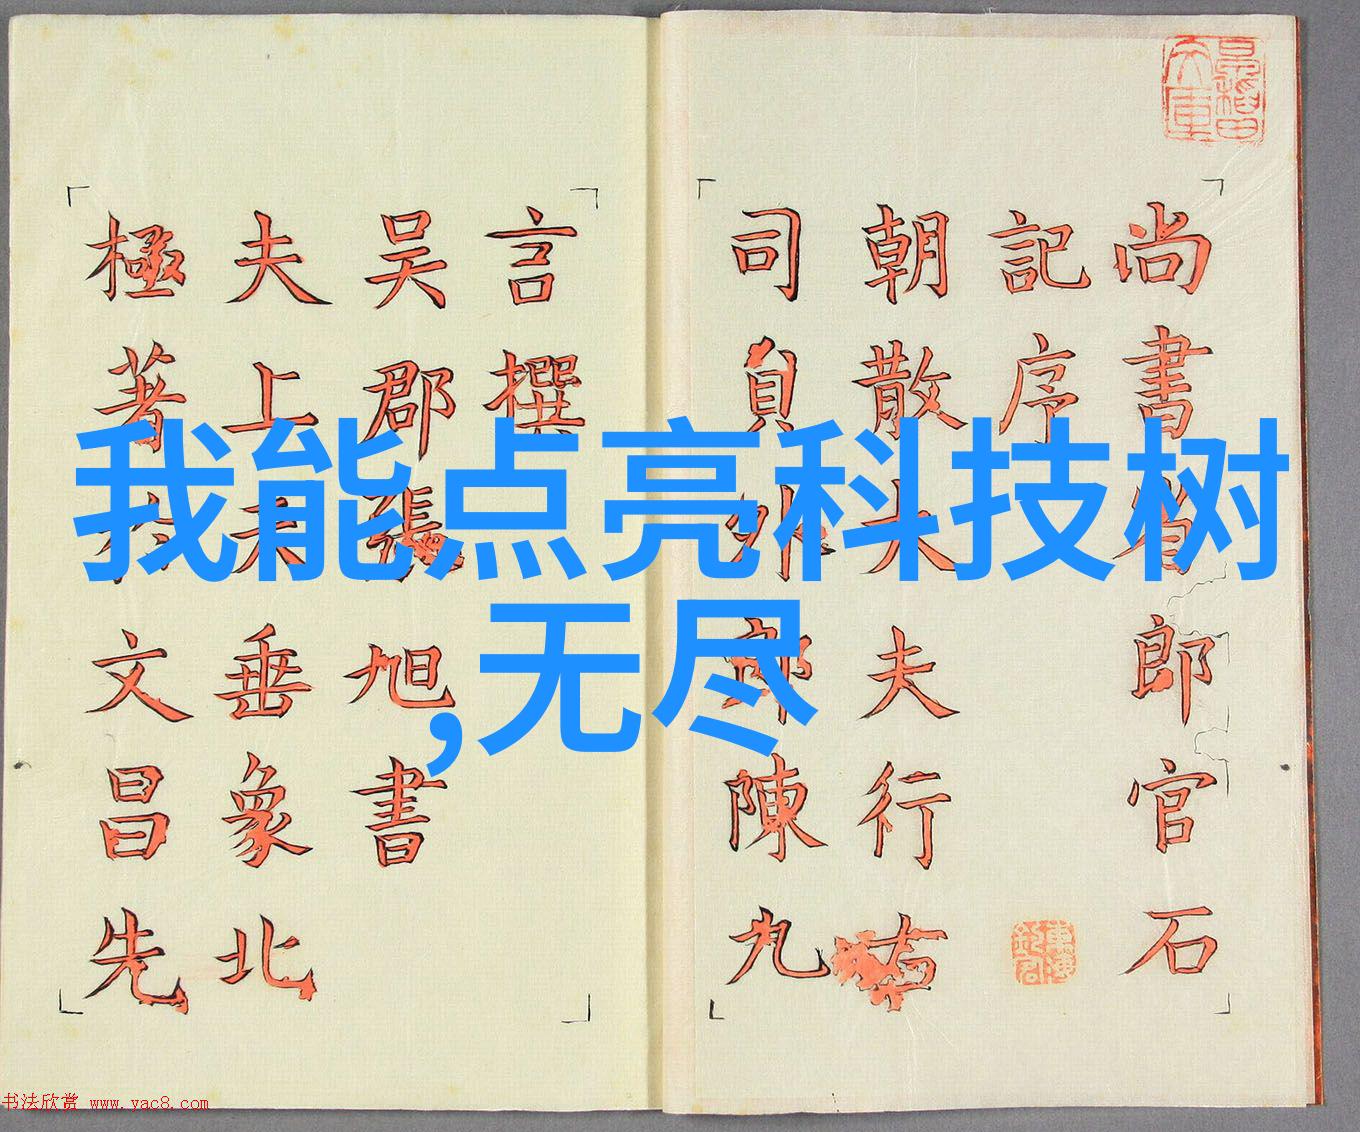 尚書省郎官石
記序
朝散大夫行右
司員外郎陳九
言撰
吳郡張旭書
夫上天垂象北
極著於文昌先
我能点亮科技树
,无尽
书法欣赏 www.yac8.com